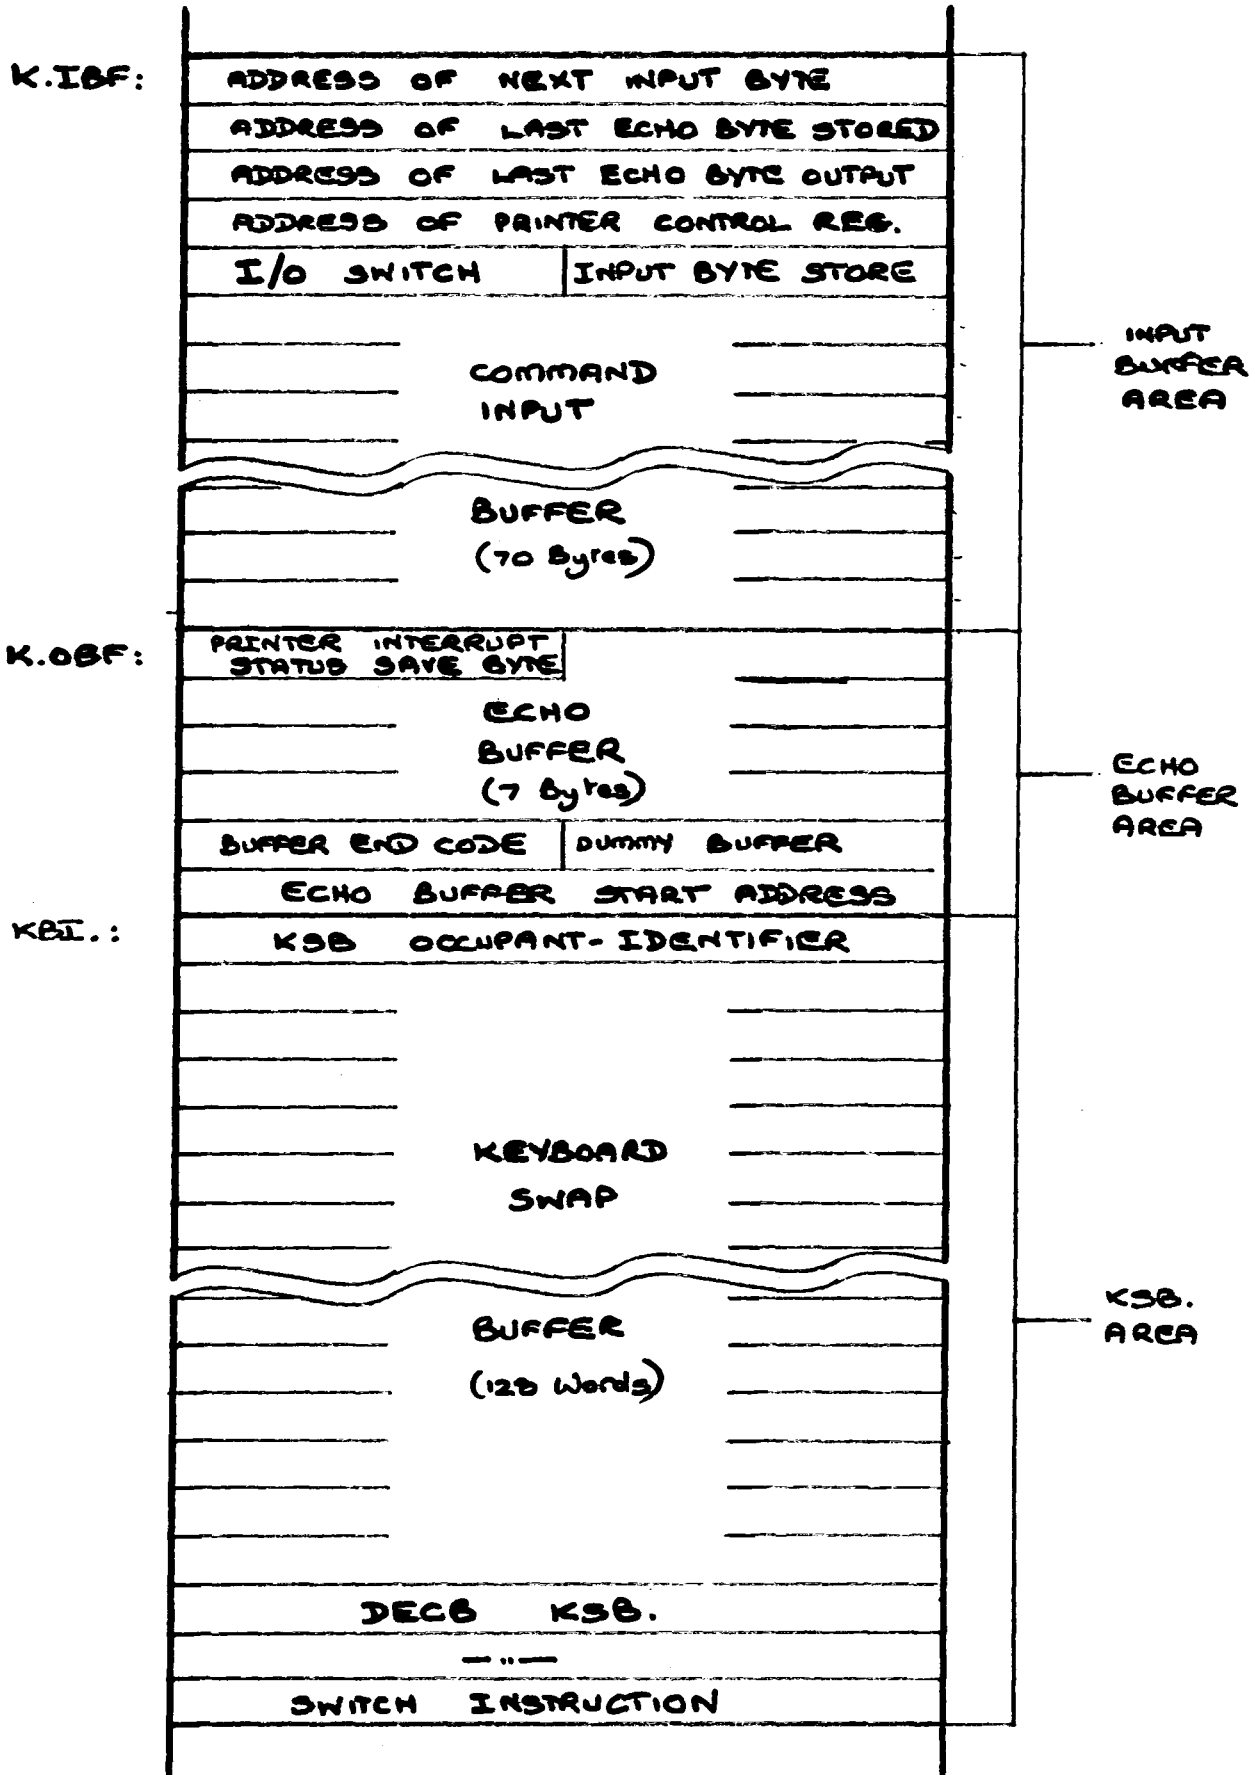 K.IBF: ADDRESS OF NEXT INPUT BYTE
ADDRESS OF LAST ECHO BYTE STORED
ADDRESS OF LAST ECHO BYTE OUTPUT
ADDRESS OF PRINTER CONTROL REG.
I/O SWITCH INPUT BYTE STORE
COMMAND
INPUT
INPUT
BUFFER
AREA
BUFFER
(70 Bytes)
K.OBF: PRINTER INTERRUPT
STATUS SAVE BYTE
ECHO
BUFFER
(7 Bytes)
ECHO
BUFFER
AREA
BUFFER END CODE DUMMY BUFFER
ECHO BUFFER START ADDRESS
KBI.: KSB OCCUPANT-IDENTIFIER
KEYBOARD
SWAP
BUFFER
(128 Words)
KSB.
AREA
DECB KSB.
—"—
SWITCH INSTRUCTION